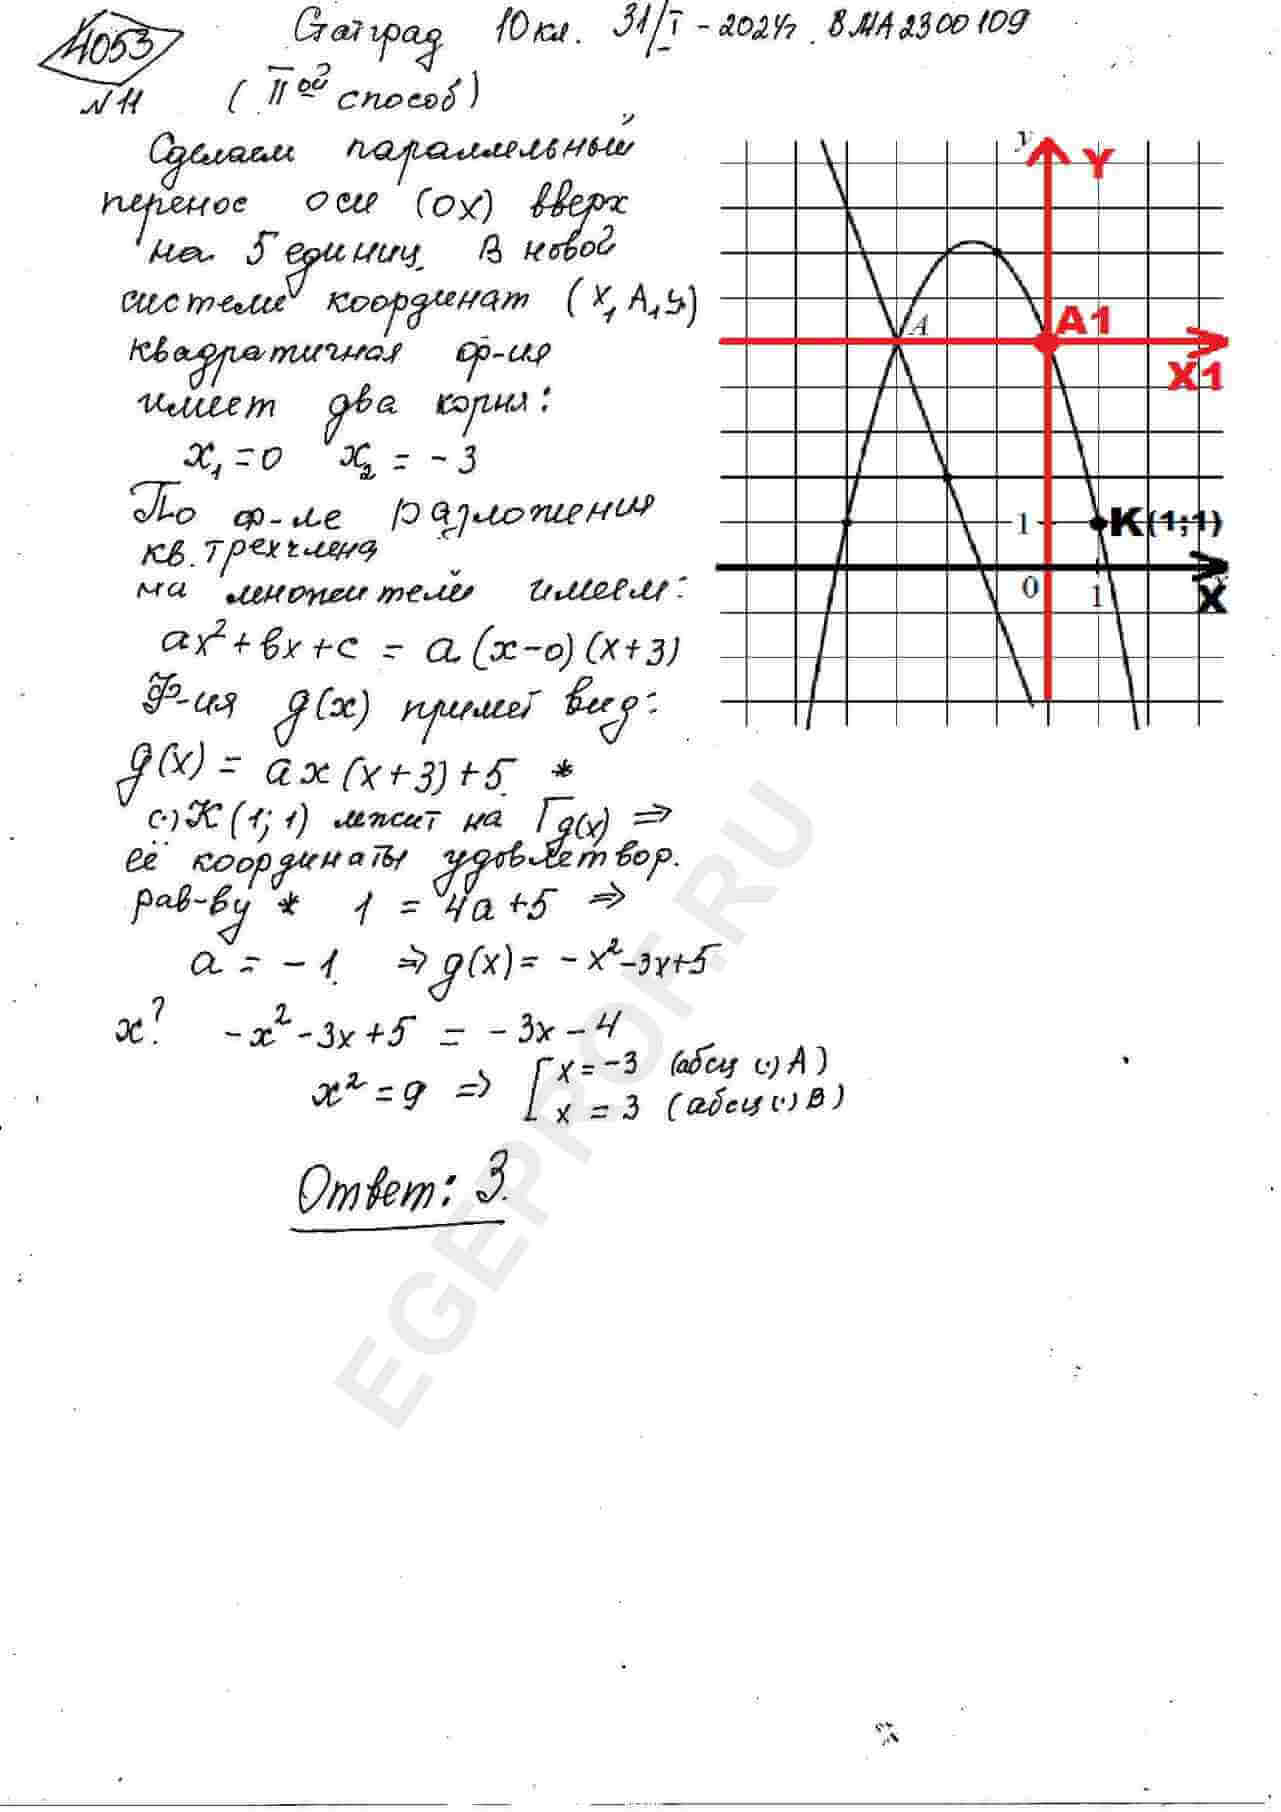 4053
Статград 10кл. 31/I-2024г. ВМА2300109
№11 (IIой способ)
Сделаем параллельный
перенос оси (OX) вверх
на 5 единиц. В новой
системе координат (X₁A₁y)
квадратичная ф-ия
имеет два корня:
x₁=0 x₂=-3
По ф-ле разложения
кв. трехчлена
на множители имеем:
ax²+bx+c = a(x-0)(x+3)
Ф-ия g(x) примет вид:
g(x) = ax(x+3)+5. *
(·)K(1;1) лежит на Гg(x) ⇒
её координаты удовлетвор.
рав-ву * 1 = 4a+5 ⇒
a = -1. ⇒ g(x)= -x²-3x+5
x? -x²-3x+5 = -3x-4
x²=9 ⇒ [ x=-3 (абсц (·) A)
x = 3 (абсц (·) B)
Ответ: 3.
y
Y
A
A1
X1
1
K(1;1)
0
1
x
X
EGEPROF.RU